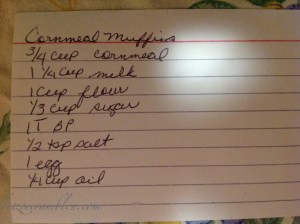 Cornmeal Muffins
3/4 cup cornmeal
1 1/4 cup milk
1 cup flour
1/3 cup sugar
1 T BP
1/2 tsp salt
1 egg
1/4 cup oil